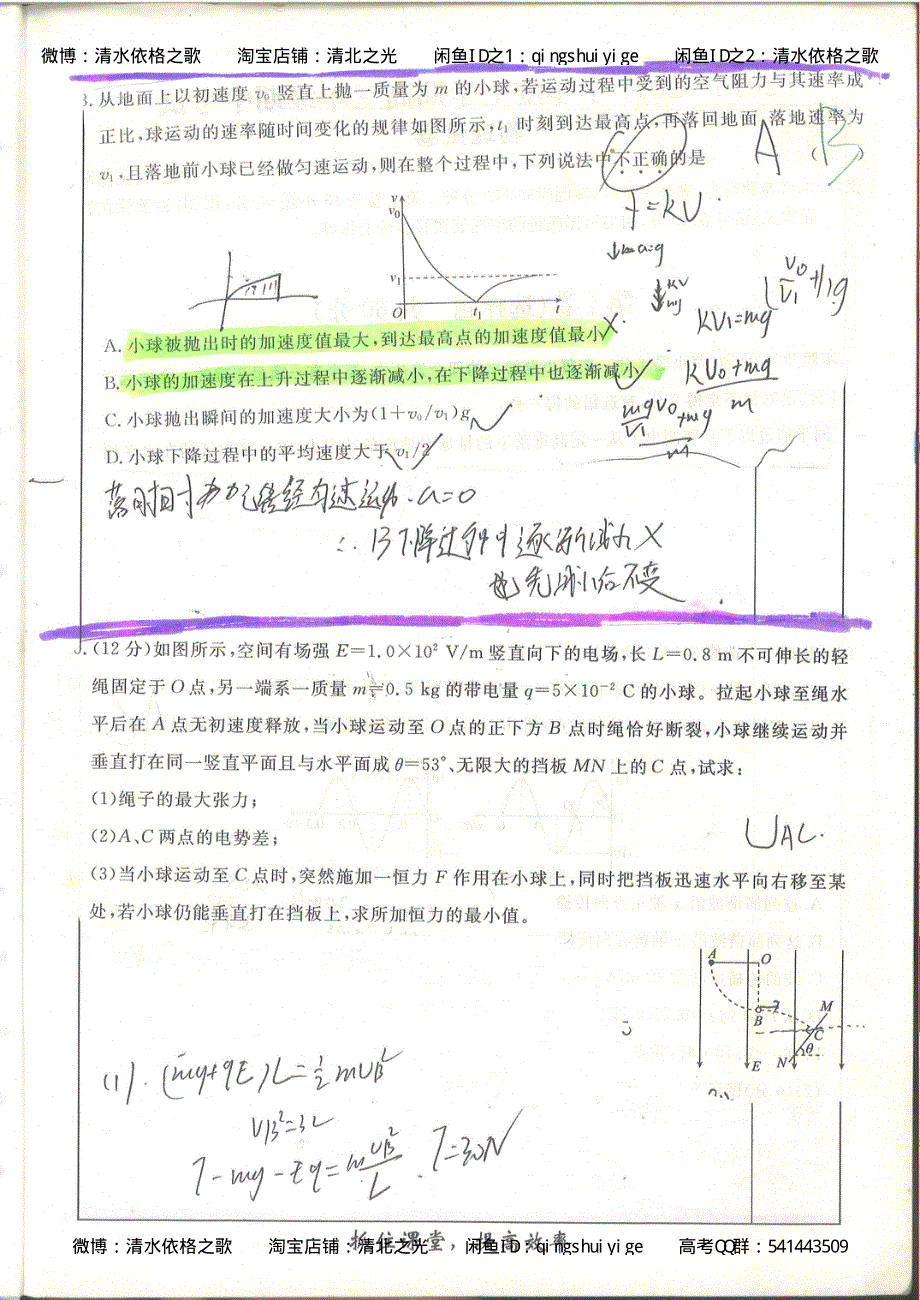 微博：清水依格之歌 淘宝店铺：清北之光 闲鱼ID之1：qingshuiyige 闲鱼ID之2：清水依格之歌
3.从地面上以初速度v₀竖直上抛一质量为m的小球,若运动过程中受到的空气阻力与其速率成
正比,球运动的速率随时间变化的规律如图所示,t₁时刻到达最高点,再落回地面,落地速率为
v₁,且落地前小球已经做匀速运动,则在整个过程中,下列说法中不正确的是 ( )
A B
f=kv
a=g
v
v₀
v₁
O t₁ t
kv
mg
kv₁=mg
(v₀/v₁+1)g
A.小球被抛出时的加速度值最大,到达最高点的加速度值最小 ×
B.小球的加速度在上升过程中逐渐减小,在下降过程中也逐渐减小 ✓
kv₀+mg
m
C.小球抛出瞬间的加速度大小为(1+v₀/v₁)g ✓
mgv₀/v₁+mg
m
D.小球下降过程中的平均速度大于v₁/2 ✓
a=0
∴B下降过程中逐渐减小×
也先减小后不变
J.(12分)如图所示,空间有场强E=1.0×10² V/m竖直向下的电场,长L=0.8 m不可伸长的轻
绳固定于O点,另一端系一质量m=0.5 kg的带电量q=5×10⁻² C的小球。拉起小球至绳水
平后在A点无初速度释放,当小球运动至O点的正下方B点时绳恰好断裂,小球继续运动并
垂直打在同一竖直平面且与水平面成θ=53°、无限大的挡板MN上的C点,试求:
(1)绳子的最大张力;
(2)A、C两点的电势差;
UAC.
(3)当小球运动至C点时,突然施加一恒力F作用在小球上,同时把挡板迅速水平向右移至某
处,若小球仍能垂直打在挡板上,求所加恒力的最小值。
A O
B M
C
θ
E N
(1).(mg+qE)L=½mvB²
T-mg-Eq=mvB²/L.T=30N
抓住课堂，提高效率
微博：清水依格之歌 淘宝店铺：清北之光 闲鱼ID：qingshuiyige 高考QQ群：541443509